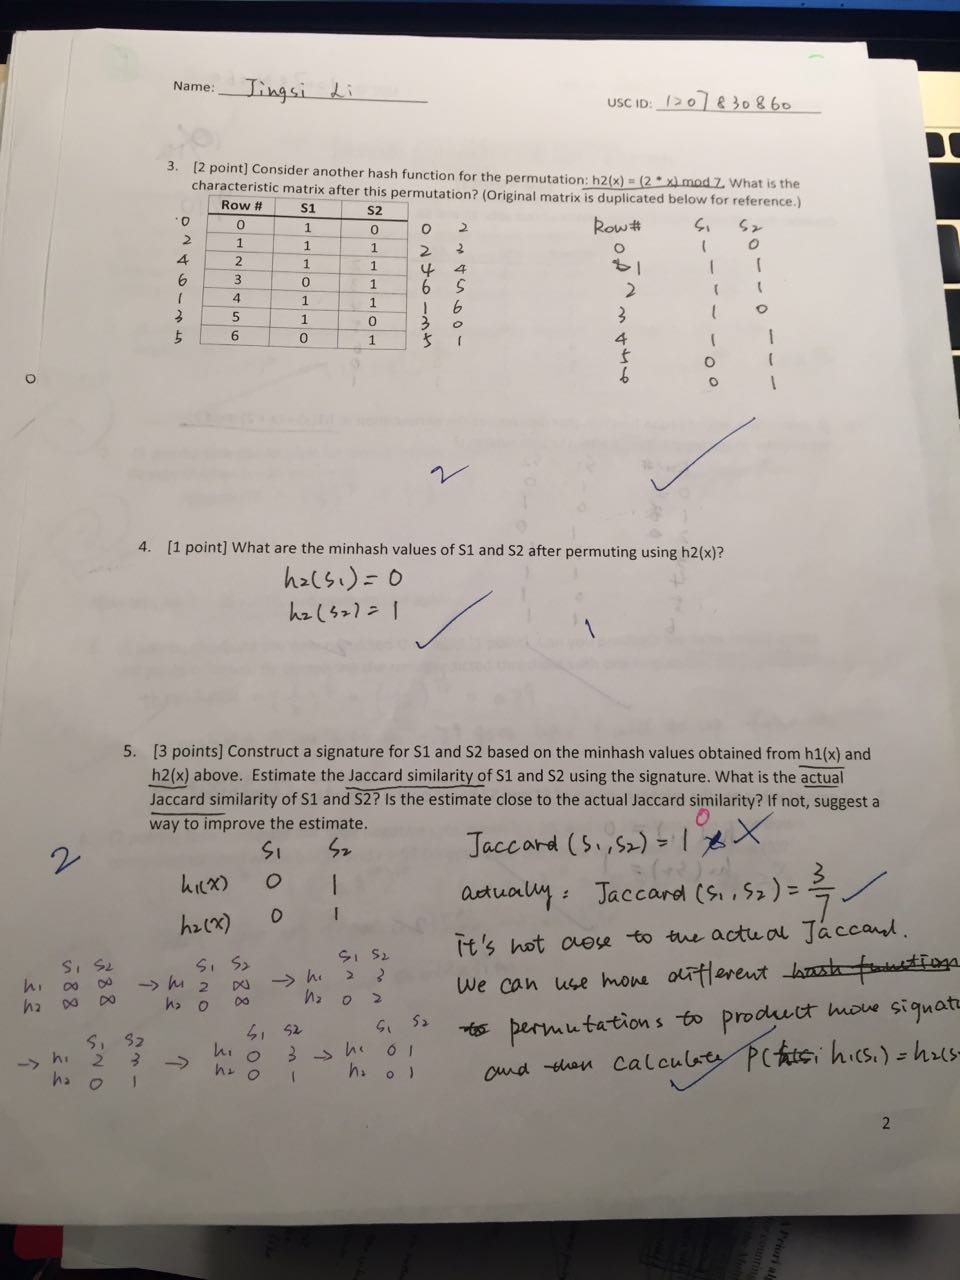 Name: Jingsi Li
USC ID: 1207830860
3. [2 point] Consider another hash function for the permutation: h2(x) = (2 * x) mod 7. What is the
characteristic matrix after this permutation? (Original matrix is duplicated below for reference.)
Row # S1 S2
0 0 1 0 0 2
2 1 1 1 2 3
4 2 1 1 4 4
6 3 0 1 6 5
1 4 1 1 1 6
3 5 1 0 3 0
5 6 0 1 5 1
Row # S1 S2
0 1 0
1 1 1
2 1 1
3 1 0
4 1 1
5 0 1
6 0 1
2
4. [1 point] What are the minhash values of S1 and S2 after permuting using h2(x)?
h2(S1) = 0
h2(S2) = 1
1
5. [3 points] Construct a signature for S1 and S2 based on the minhash values obtained from h1(x) and
h2(x) above. Estimate the Jaccard similarity of S1 and S2 using the signature. What is the actual
Jaccard similarity of S1 and S2? Is the estimate close to the actual Jaccard similarity? If not, suggest a
way to improve the estimate.
2
S1 S2
h1(x) 0 1
h2(x) 0 1
S1 S2
h1 ∞ ∞
h2 ∞ ∞
→ S1 S2
h1 2 ∞
h2 0 ∞
→ S1 S2
h1 2 3
h2 0 2
→ S1 S2
h1 2 3
h2 0 1
→ S1 S2
h1 0 3
h2 0 1
→ S1 S2
h1 0 1
h2 0 1
0
Jaccard (S1, S2) = 1 X
actually: Jaccard (S1, S2) = 3/7
it's not close to the actual Jaccard.
We can use more different hash function
to permutations to product more signat
and then calculate P( h1(S1) = h2(S
2